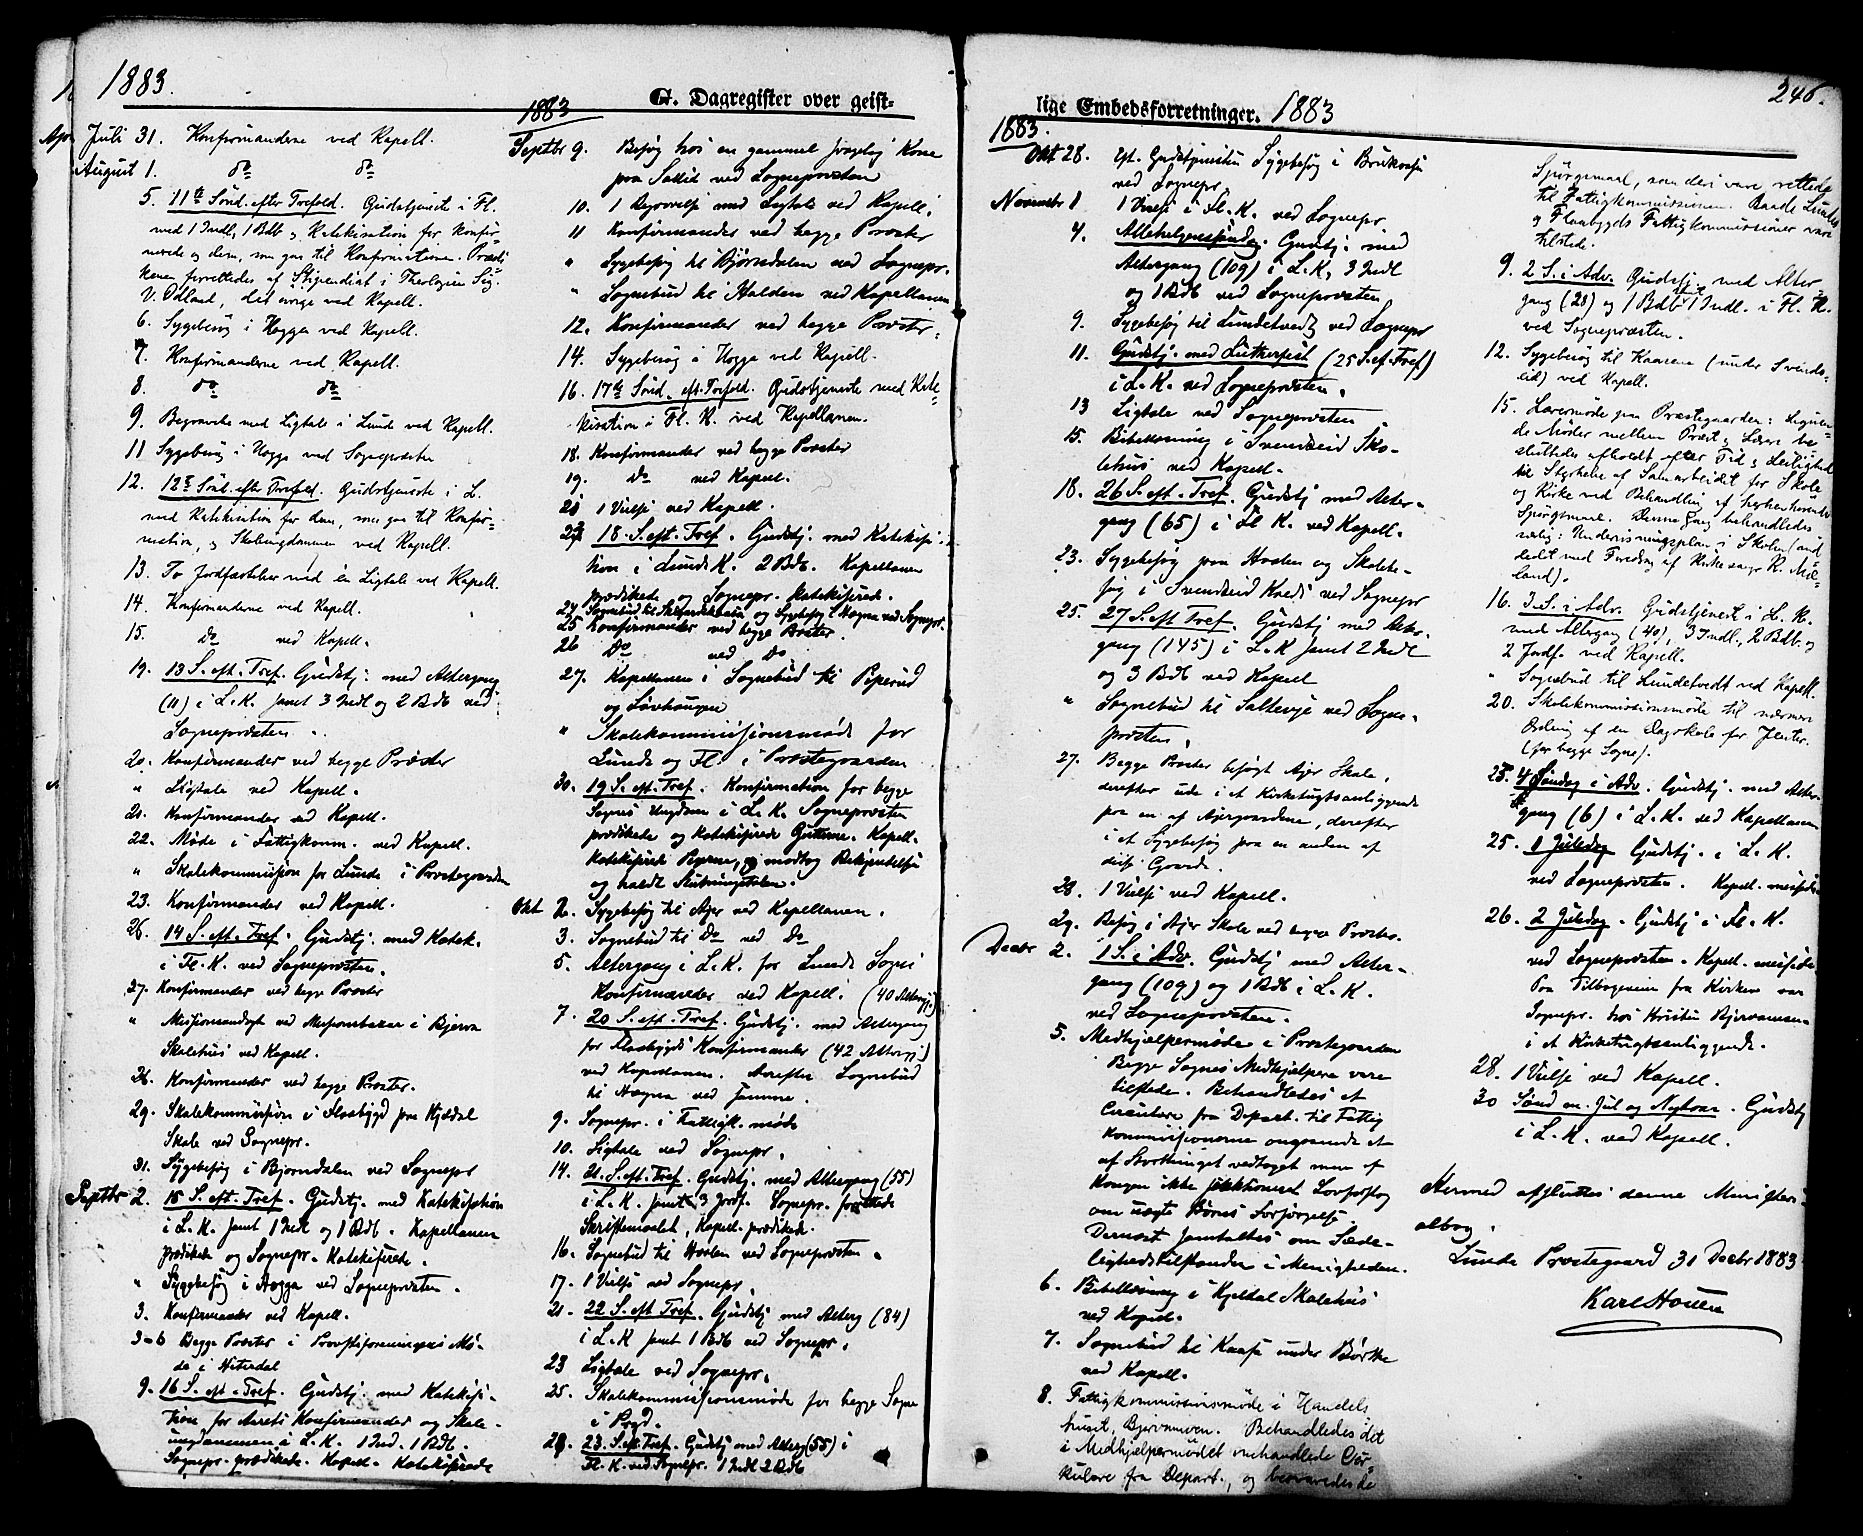 1883.
G. Dagregister over geist-
1883
Juli 31. Konfirmanderne ved Kapell.
August 1. do do
5. 11te Sönd. efter Trefold. Gudstjeneste i Fl.
ved 1 Indl, 1 Bdb og Katekisation for Konfir-
merede og dem, som gaa til Konfirmation. Prædi-
kenen forrettedes af Stipendiat i Theologien Sig.
V. Odland, det övrige ved Kapell.
6. Sygebesög i Hogga ved Kapell.
7. Konfirmanderne ved Kapell.
8. do do
9. Begravelse med Ligtale i Lunde ved Kapell.
11 Sygebesög i Hogga ved Sognepræsten
12. 12te Sönd. efter Trefold. Gudstjeneste i L.
med Katekisation for dem, som gaa til Konfir-
mation, og Skoleungdommen ved Kapell.
13. To Jordfæstelser med én Ligtale ved Kapell.
14. Konfirmanderne ved Kapell.
15. Do ved Kapell.
19. 13 S. eft. Tref. Gudstj. med Altergang
(11) i L. K. samt 3 Indl og 2 Bdb ved
Sognepræsten.
20. Konfirmander ved begge Præster
" Ligtale ved Kapell.
21. Konfirmander ved Kapell.
22. Möde i Fattigkomm. ved Kapell.
" Skolekommission for Lunde i Præstegaarden
23. Konfirmander ved Kapell.
26. 14 S. eft. Tref. Gudstj. med Katek.
i Fl. K. ved Sognepræsten.
27. Konfirmander ved begge Præster
" Missionsandagt ved Missionsbazar i Bjerva
Skolehus ved Kapell.
28. Konfirmander ved begge Præster.
29. Skolekommission i Flaabygd paa Kjeldal
Skole ved Sognepr.
31. Sygebesög i Bjorndalen ved Sognepr
Septbr 2. 15 S. eft. Tref. Gudstj. med Katekisation
i L. K. samt 1 Indl og 1 Bdb. Kapellanen
prædikede og Sognepr. katekiserede.
" Sygebesög i Hogga ved Sognepræsten.
3. Konfirmander ved Kapell.
3-6 Begge Præster i Provstiforeningens Mö-
de i Hiterdal
9. 16 S. eft. Tref. Gudstj. med Katekisa-
tion for Aarets Konfirmander og Skole-
ungdommen i L. K. 1 Ind. 1 Bdb.
Sognepr. prædikede. Kapell. katekiserede
Septbr 9. Besög hos en gammel svagelig Kone
paa ved Sognepræsten
10. 1 Begravelse med Ligtale ved Kapell.
11 Konfirmander ved begge Præster
" Sygebesög til Bjørndalen ved Sognepr.
" Sognebud til Halden ved Kapellanen
12. Konfirmander ved begge Præster.
14. Sygebesög i Hogga ved Kapell.
16. 17te Sönd. eft. Trefold. Gudstjeneste med Kate-
kisation i Fl. K. ved Kapellanen.
18. Konfirmander ved begge Præster
19. Do ved Kapel.
21 1 Vielse ved Kapell.
23 18. S. eft. Tref. Gudstj. med Katekisa-
tion i Lunde K. 2 Bdb. Kapellanen
prædikede og Sognepr. katekiserede.
24. Sognebud til og Sygebesög i Hogna ved Sognepr.
25 Konfirmander ved begge Præster.
26 Do ved Do
27. Kapellanen i Sognebud til Piperud
og Lövhaugen
" Skolekommissionsmöde for
Lunde og Fl. i Præstegaarden
30. 19 S. eft. Tref. Konfirmation for begge
Sognes Ungdom i L. K. Sognepræsten
prædikede og katekiserede Gutterne. Kapell.
katekiserede Pigerne, og modtog Bekjendelsen
og holdt Slutningstalen.
Okt 2. Sygebesög til Ajer ved Kapellanen.
3. Sognebud til Do ved Do
5. Altergang i L. K. for Lunde Sogns
Konfirmerede ved Kapell. (40 Alterg.)
7. 20 S. eft. Tref. Gudstj. med Altergang
for Flaabygds Konfirmander (42 Alterg.)
ved Kapellanen. Derefter Sognebud
til Hogna ved Samme.
9. Sognepr. i Fattigk. möde
10. Ligtale ved Sognepr.
14. 21. S. eft. Tref. Gudstj. med Altergang (55)
i L. K. samt 3 Jordf. Sognepr. forrettede
Skriftemaalet, Kapell. prædikede.
16. Sognebud til Hoolen ved Sognepræsten.
17. 1 Vielse ved Sognepr.
21. 22 S. eft Tref. Gudstj med Alterg (84)
i L. K samt 1 Bdb ved Sognepr.
23 Ligtale ved Sognepr.
25. Skolekommissionsmöde for begge Sogne
i Prgd.
28. 23. S. eft Tref. Gudstj med Alterg (55) i
Fl. K. ved Sognepr. 1 Indl 2 Bdb
lige Embedsforretninger. 1883
246.
1883.
Okt 28. Eft. Gudstjenesten Sygebesög i
ved Sognepr.
Novembr 1 1 Vielse i Fl. K. ved Sognepr.
4. Allehelgenssöndag. Gudstj. med
Altergang (109) i L. K, 3 Indl
og 1 Bdb ved Sognepræsten
9. Sygebesög til Lundetvedt ved Sognepr
11. Gudstj. med Lutherfest (25 S. ef. Tref)
i L. K. ved Sognepræsten.
13 Ligtale ved Sognepræsten
15. Bibellæsning i Svendseid Sko-
lehus ved Kapell.
18. 26 S. eft. Tref. Gudstj med Alter-
gang (65) i Fl K. ved Kapell.
23. Sygebesög paa Hoolen og Skolebe-
sög i Svendseid Kreds ved Sognepr
25. 27 S. eft Tref. Gudstj med Alter-
gang (145) i L. K samt 2 Indl
og 3 Bdb ved Kapell
" Sognebud til Saltevje ved Sogne-
præsten.
27. Begge Præster besögt Ajer Skole,
derefter ude i et Kirketugtsanliggende
paa en af Ajergaardene, derefter
i et Sygebesög paa en anden af
disse Gaarde.
28. 1 Vielse ved Kapell.
29. Besög i Ajer Skole ved begge Præster.
Decbr 2. 1 S. i Adv. Gudstj med Alter-
gang (109) og 1 Bdb i L. K.
ved Sognepræsten.
5. Medhjælpermöde i Præstegaarden
Begge Sognes Medhjælpere vare
tilstede. Behandledes et
Circulære fra Depart. til Fattig
kommissionerne angaaende et
af Storthinget vedtaget men af
Kongen ikke sanktioneret Lovforslag
om uægte Börns Forsörgelse
Dernæst samtaltes om Sæde-
lighedstilstanden i Menigheden.
6. Bibellæsning i Kjeldal Skolehus
ved Kapel.
7. Sognebud til Kaasa under Börthe
ved Kapell.
8. Fattigkommissionsmöde i Handels
huset, Bjervamoen. Behandledes det
i Medhjælpermödet omhandlede Cir-
kulære fra Depart., og besvaredes de
Spörgsmaal, som deri vare rettede
til Fattigkommissionen. Baade Lundes
og Flaabygds Fattigkommissioner vare
tilstede.
9. 2 S. i Adv. Gudstj. med Alter-
gang (28) og 1 Bdb samt 1 Indl. i Fl. K.
ved Sognepræsten.
12. Sygebesög til Kaasene (under Svends-
eid) ved Kapell.
15. Læremöde paa Præstegaarden: Lignen-
de Möder mellem Præst og Lærer be-
sluttedes afholdt efter Tid og Leilighed
til Styrkelse af Samarbeidet for Skole
og Kirke ved Behandling af herhenhörende
Spörgsmaal. Denne Gang behandledes
særlig: Undervisningsplan i Skolen (ind
ledet med Foredrag af Kirkesanger K. Mæ-
land).
16. 3. S. i Adv. Gudstjeneste i L. K.
med Altergang (40), 3 Indl, 2 Bdb. og
2 Jordf. ved Kapell.
" Sognebud til Lundetvedt ved Kapell.
20. Skolekommissionsmöde til nærmere
Ordning af en Dagskole for Jenter.
(for begge Sogne).
23. 4 Söndag i Adv. Gudstj. med Alter-
gang (6) i L. K. ved Kapellanen
25. 1 Juledag Gudstj. i L. K.
ved Sognepræsten. Kapell. messede
26. 2 Juledag. Gudstj i Fl. K.
ved Sognepræsten. Kapell. messede
Paa Tilbageveien fra Kirken var
Sognepr. hos Kristen Bjervamoen
i et Kirketugtsanliggende.
28. 1 Vielse ved Kapell.
30 Sönd m. Jul og Nytaar. Gudstj
i L. K. ved Kapell.
Hermed afsluttes denne Ministeri-
albog.
Lunde Præstegaard 31 Decbr 1883
Karl Houen